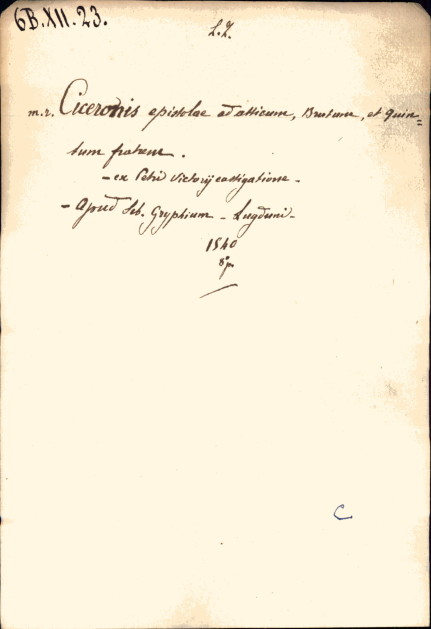 6B.XII.23.
L.Z.
m.r. Ciceronis epistolae ad atticum, Brutum, et Quin=
tum fratrem.
- ex Petri Victorij castigatione -
- Apud Seb. Gryphium - Lugduni -
1540
8º
C